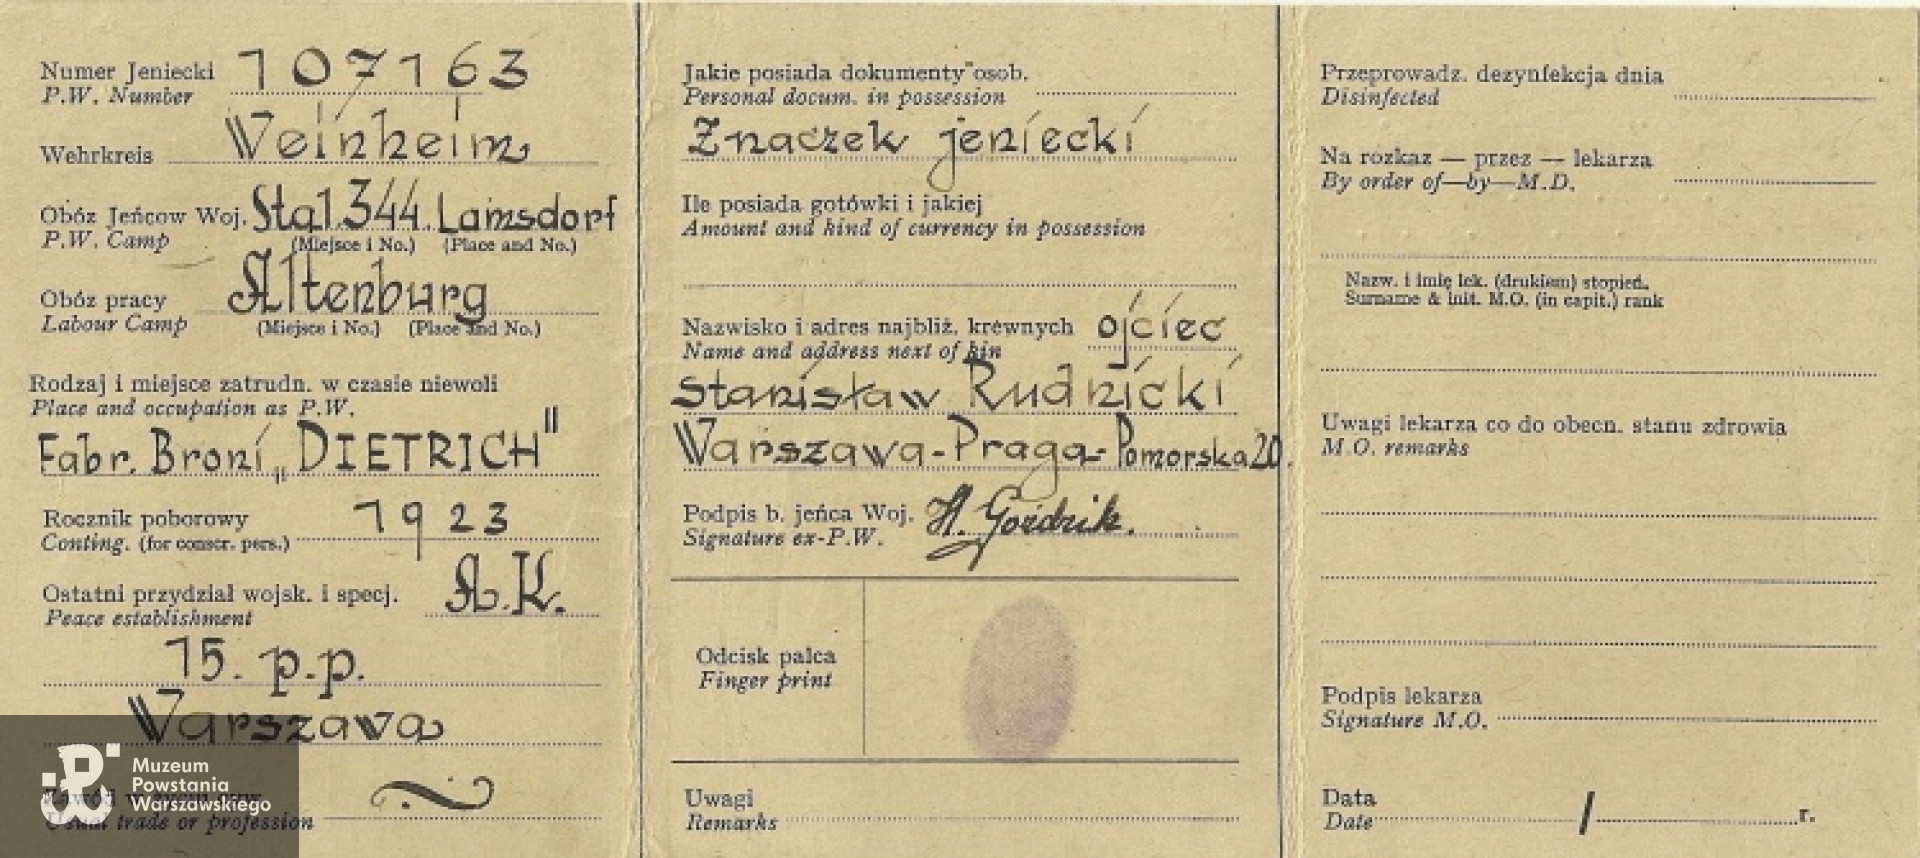 Numer Jeniecki 107163
P.W. Number
Wehrkreis Weinheim
Obóz Jeńcow Woj. Stal.344.Lamsdorf
P.W. Camp (Miejsce i No.) (Place and No.)
Obóz pracy Altenburg
Labour Camp (Miejsce i No.) (Place and No.)
Rodzaj i miejsce zatrudn. w czasie niewoli
Place and occupation as P.W.
Fabr. Broni „DIETRICH"
Rocznik poborowy 1923
Conting. (for constr. pers.)
Ostatni przydział wojsk. i specj. A.K.
Peace establishment
15. p.p.
Warszawa
Usual trade or profession
Muzeum
Powstania
Warszawskiego
Jakie posiada dokumenty osob.
Personal docum. in possession
Znaczek jeniecki
Ile posiada gotówki i jakiej
Amount and kind of currency in possession
Nazwisko i adres najbliż. krewnych ojciec
Name and address next of kin
Stanisław Rudnicki
Warszawa-Praga-Pomorska 20.
Podpis b. jeńca Woj. H. Goździk.
Signature ex-P.W.
Odcisk palca
Finger print
Uwagi
Remarks
Przeprowadz. dezynfekcja dnia
Disinfected
Na rozkaz — przez — lekarza
By order of—by—M.D.
Nazw. i imię lek. (drukiem) stopień.
Surname & init. M.O. (in capit.) rank
Uwagi lekarza co do obecn. stanu zdrowia
M.O. remarks
Podpis lekarza
Signature M.O.
Data
Date / r.